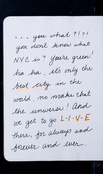 ... you what ?!?!
you dont know what
NYC is? You're green!
ha ha. its only the
best city in the
world, no make that
the universe! And
we get to go L-I-V-E
there, for always and
forever and ever.